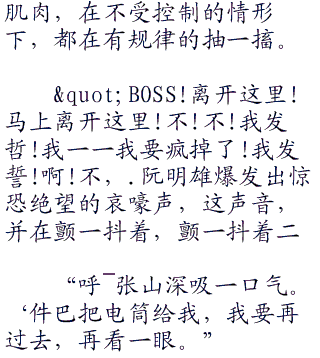 肌肉，在不受控制的情形
下，都在有规律的抽一搐。
&quot;BOSS!离开这里!
马上离开这里!不!不!我发
哲!我一一我要疯掉了!我发
誓!啊!不，.阮明雄爆发出惊
恐绝望的哀嚎声，这声音，
并在颤一抖着，颤一抖着二
“呼¯张山深吸一口气。
‘件巴把电筒给我，我要再
过去，再看一眼。”